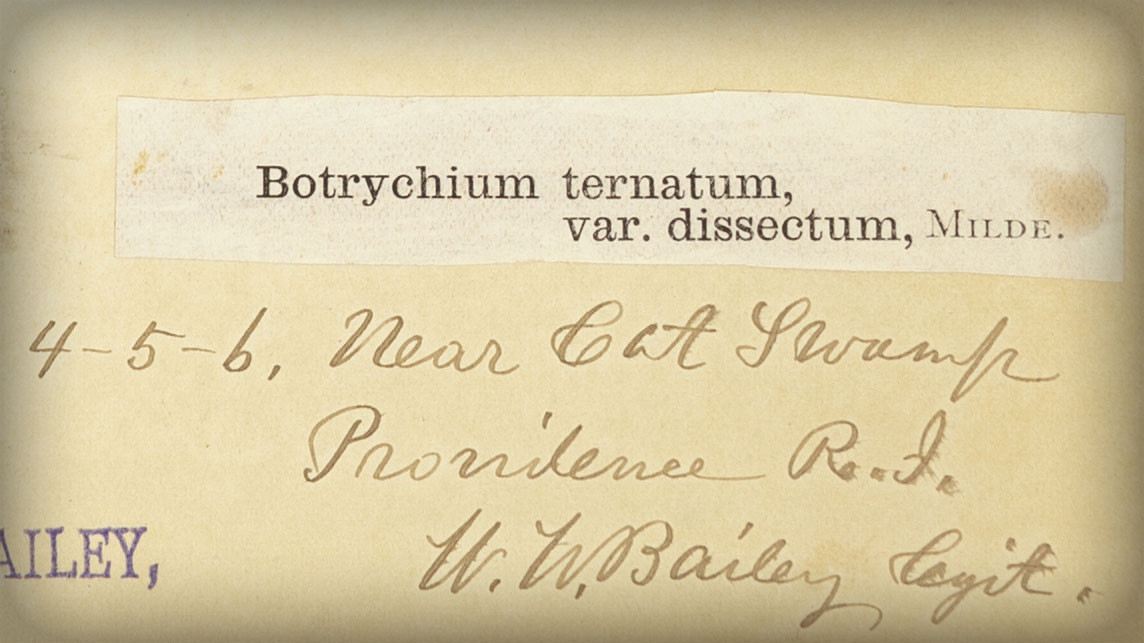 Botrychium ternatum,
var. dissectum, MILDE.
4-5-6, Near Cat Swamp
Providence R.I.
AILEY,
W. W. Bailey Legit.